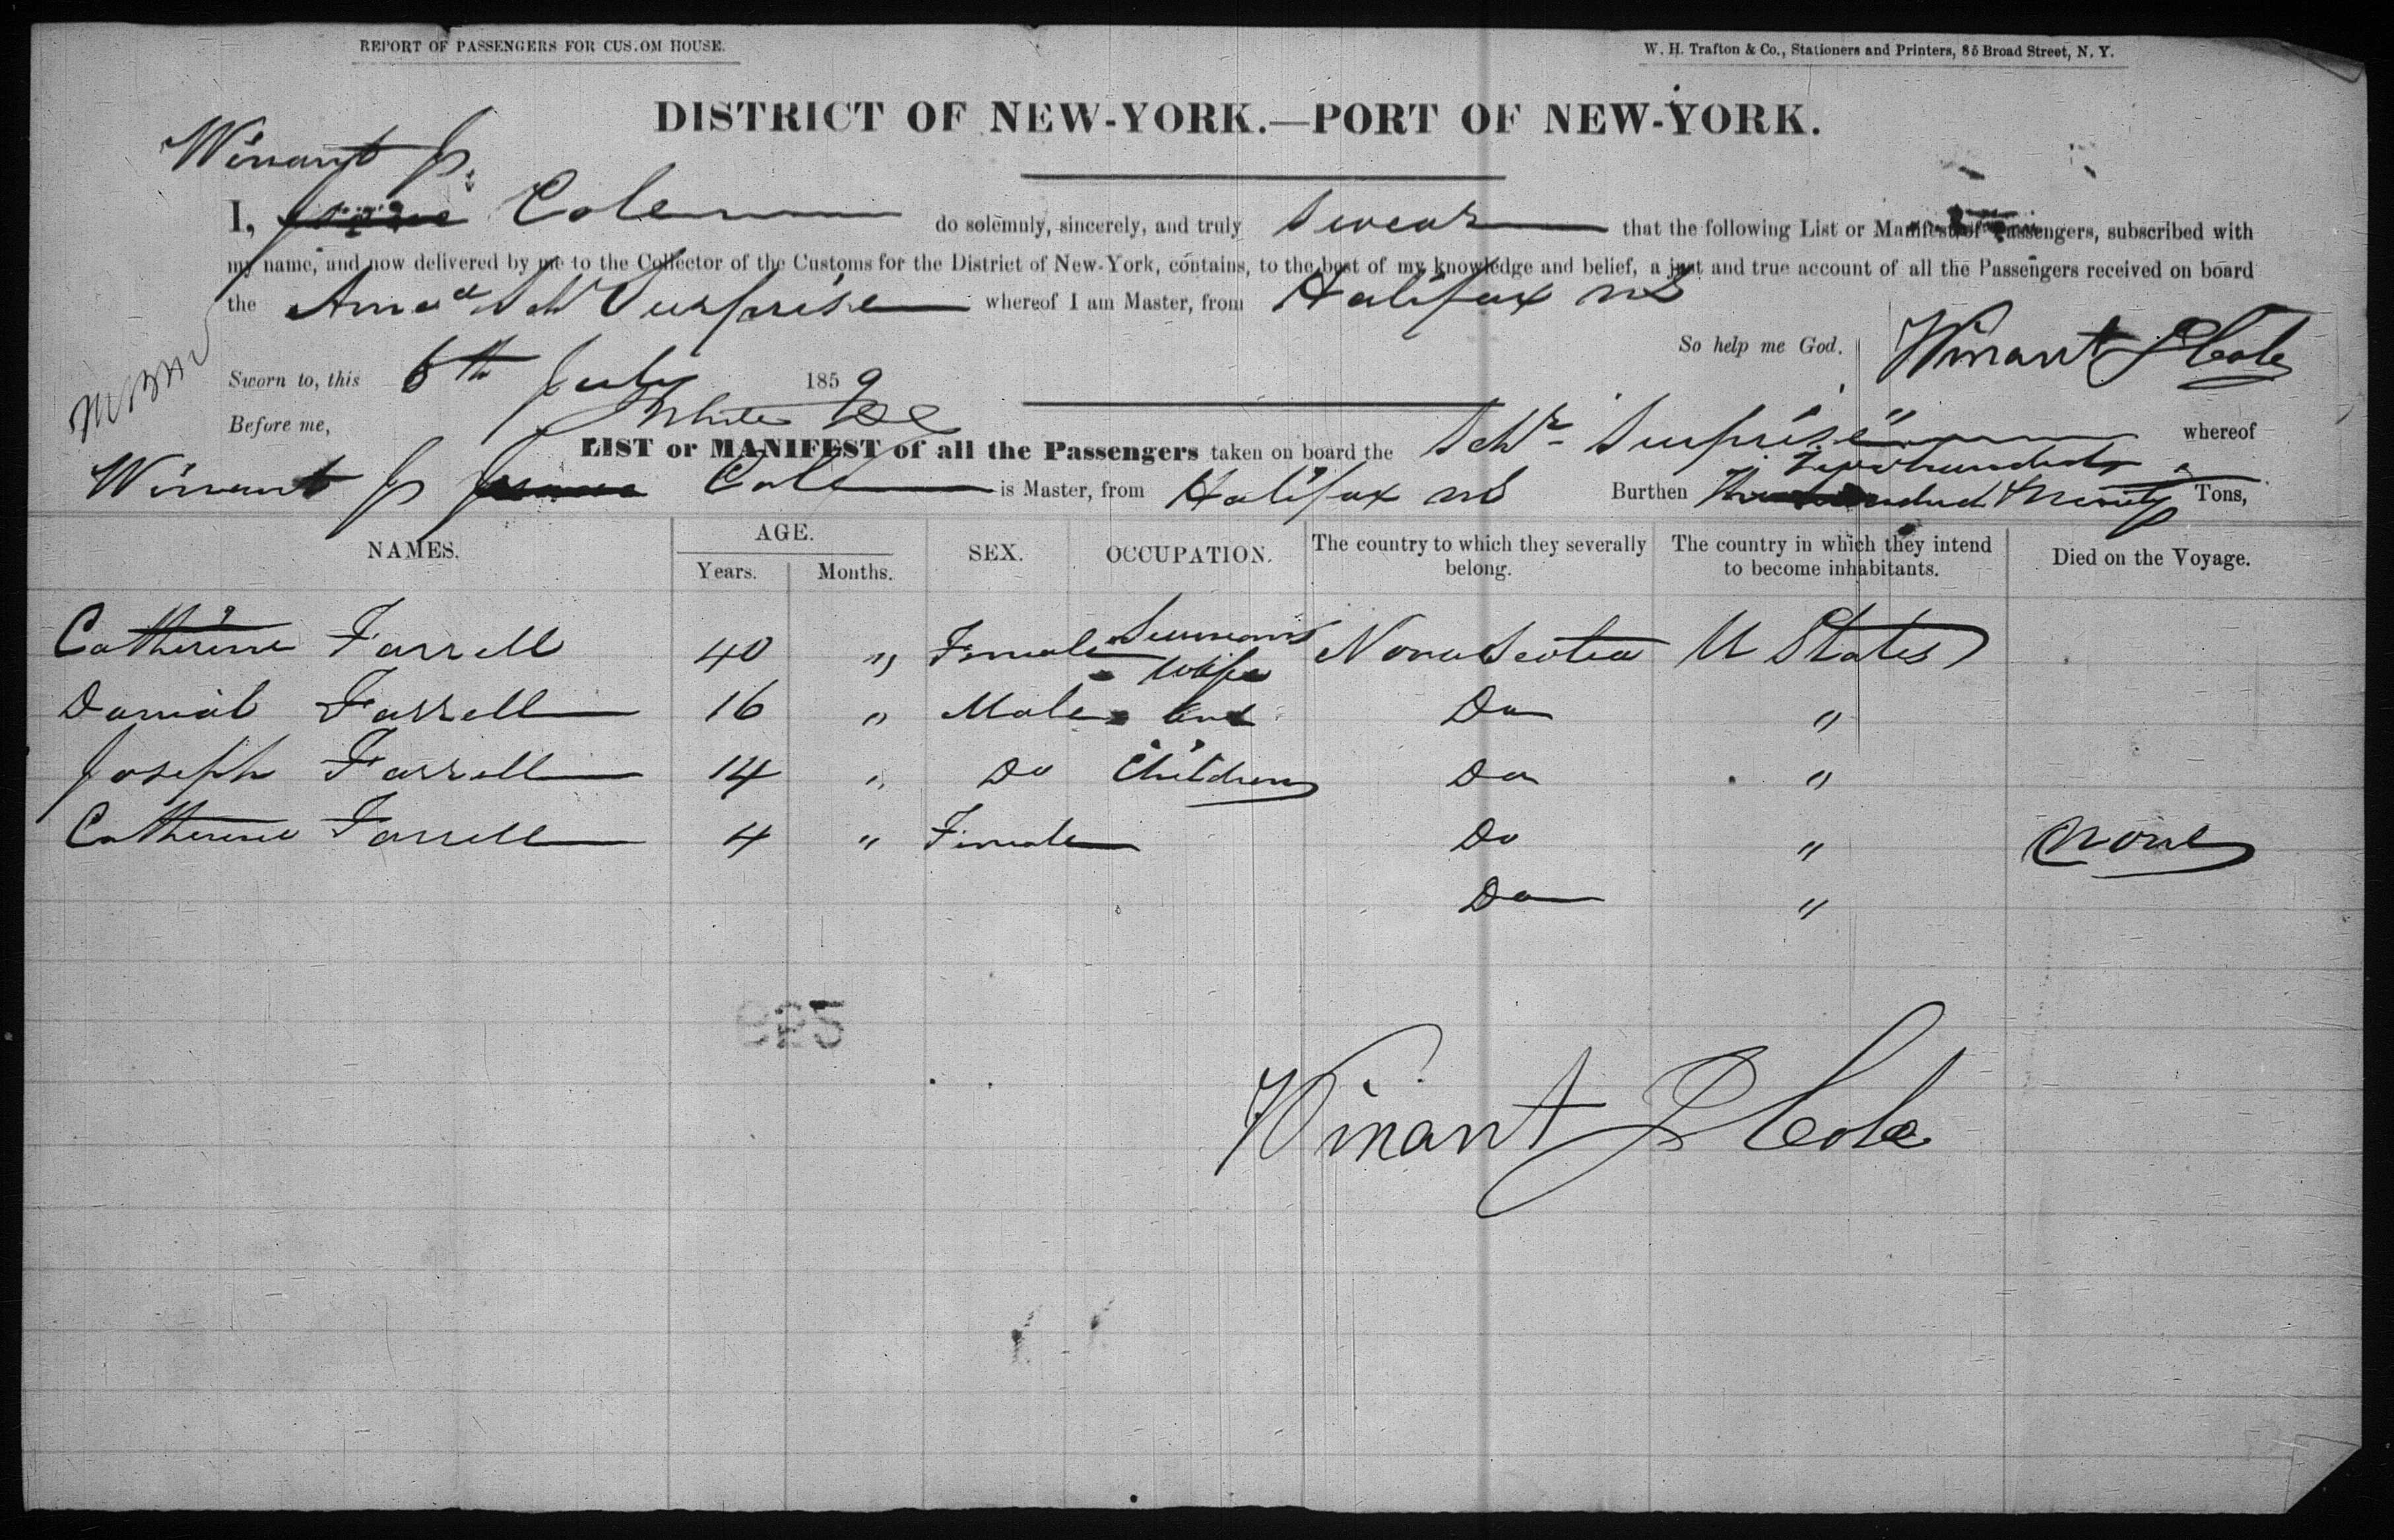 REPORT OF PASSENGERS FOR CUS.OM HOUSE.
W. H. Trafton & Co., Stationers and Printers, 85 Broad Street, N. Y.
DISTRICT OF NEW-YORK.—PORT OF NEW-YORK.
Winant J.
I, Cole do solemnly, sincerely, and truly Swear that the following List or Manifest of Passengers, subscribed with
my name, and now delivered by me to the Collector of the Customs for the District of New-York, contains, to the best of my knowledge and belief, a just and true account of all the Passengers received on board
the Amer Schr Surprise whereof I am Master, from Halifax NS
So help me God. Winant J Cole
Sworn to, this 6th July 1859
Before me, White
LIST or MANIFEST of all the Passengers taken on board the Schr Surprise whereof
Two hundred
Winant J Cole is Master, from Halifax NS Burthen & Ninety Tons,
NAMES. AGE. SEX. OCCUPATION. The country to which they severally belong. The country in which they intend to become inhabitants. Died on the Voyage.
Years. Months.
Catherine Farrell 40 " Female Wife Nova Scotia U States
Daniel Farrell 16 " Male and Do "
Joseph Farrell 14 " Do Children Do "
Catherine Farrell 4 " Female Do " None
Do "
Winant J Cole